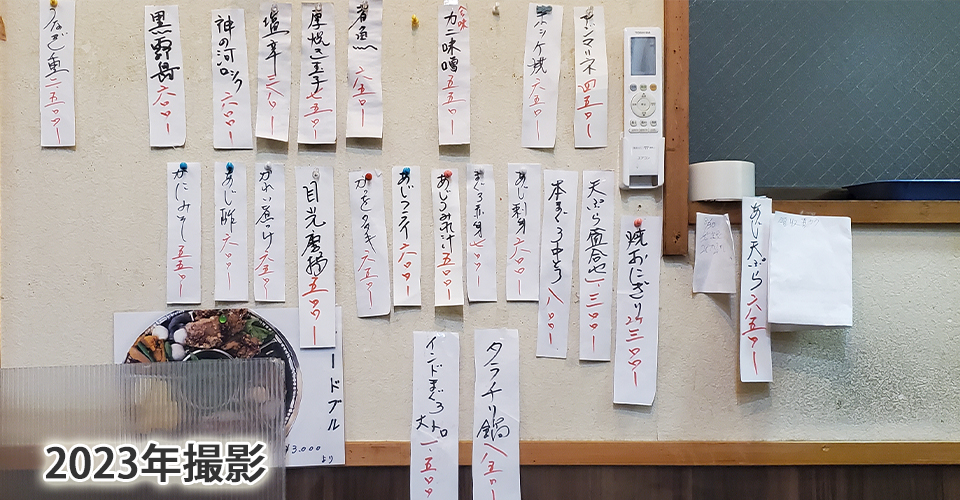 サンマ一本 四五〇ー
ホッケ焼 六五〇ー
今味
カニ味噌 五五〇ー
煮魚 六五〇ー
厚焼き玉子 七五〇ー
塩辛 三八〇ー
神の河ロック 六〇〇ー
黒霧島 六〇〇ー
うなぎ重 二、五〇〇ー
焼おにぎり 2ケ 三〇〇ー
天ぷら盛合せ 一、三〇〇ー
本まぐろ中とろ 八〇〇ー
あじ刺身 六〇〇ー
まぐろ赤身 七〇〇ー
あじつみれ汁 五〇〇ー
あじフライ 六〇〇ー
かつをタタキ 六五〇ー
目光唐揚 五〇〇ー
かれい煮つけ 六五〇ー
あじ酢 六〇〇ー
かにみそ 五五〇ー
あじ天ぷら 六五〇ー
タラチリ鍋 八五〇ー
インドまぐろ
大トロ
一、五〇〇
ードブル
¥3,000
より
TOSHIBA
2023年撮影